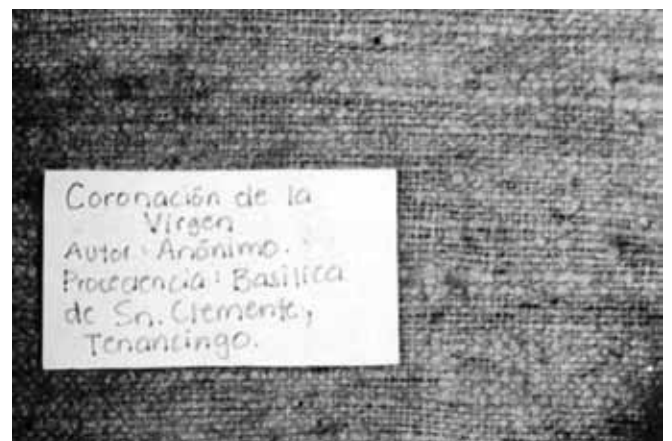 Coronación de la
Virgen
Autor: Anónimo.
Procedencia: Basílica
de Sn. Clemente,
Tenancingo.